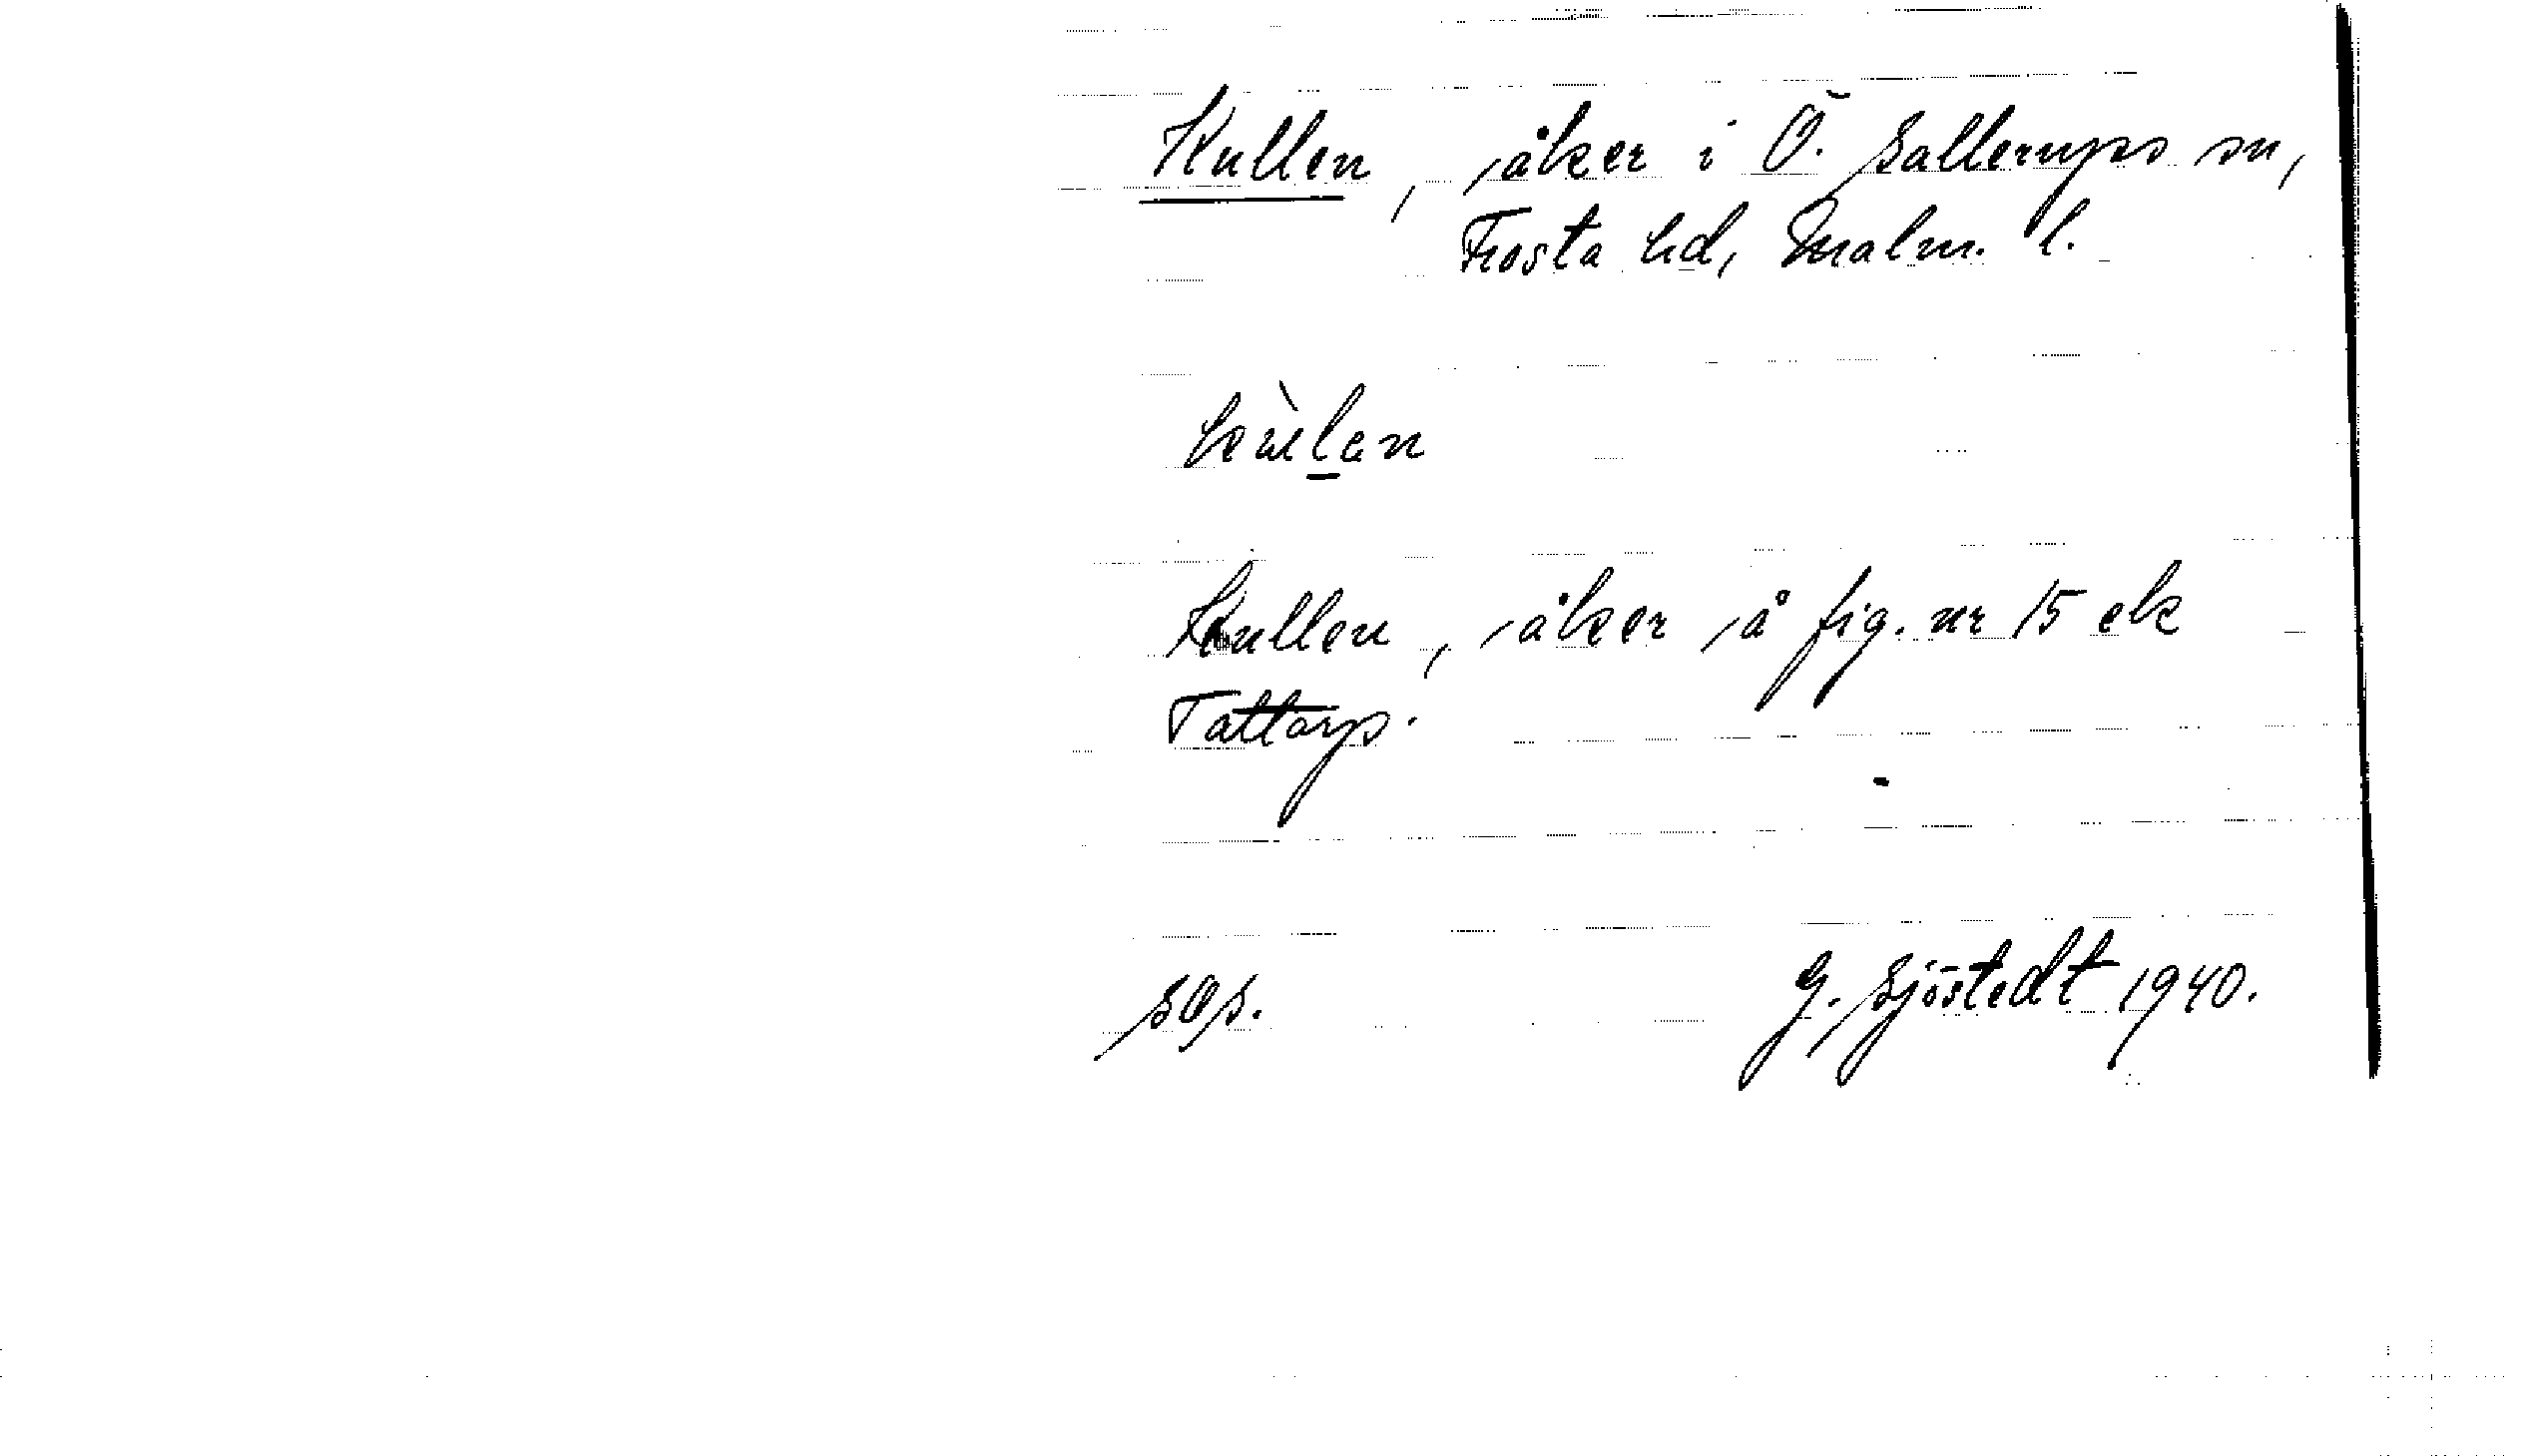 Kullen, åker i Ö. Sallerups sn,
Frosta hd, Malm. l.
kùlen
Kullen, åker å fig. nr 15 ek
Tattarp.
sas.
G. Sjöstedt 1940.